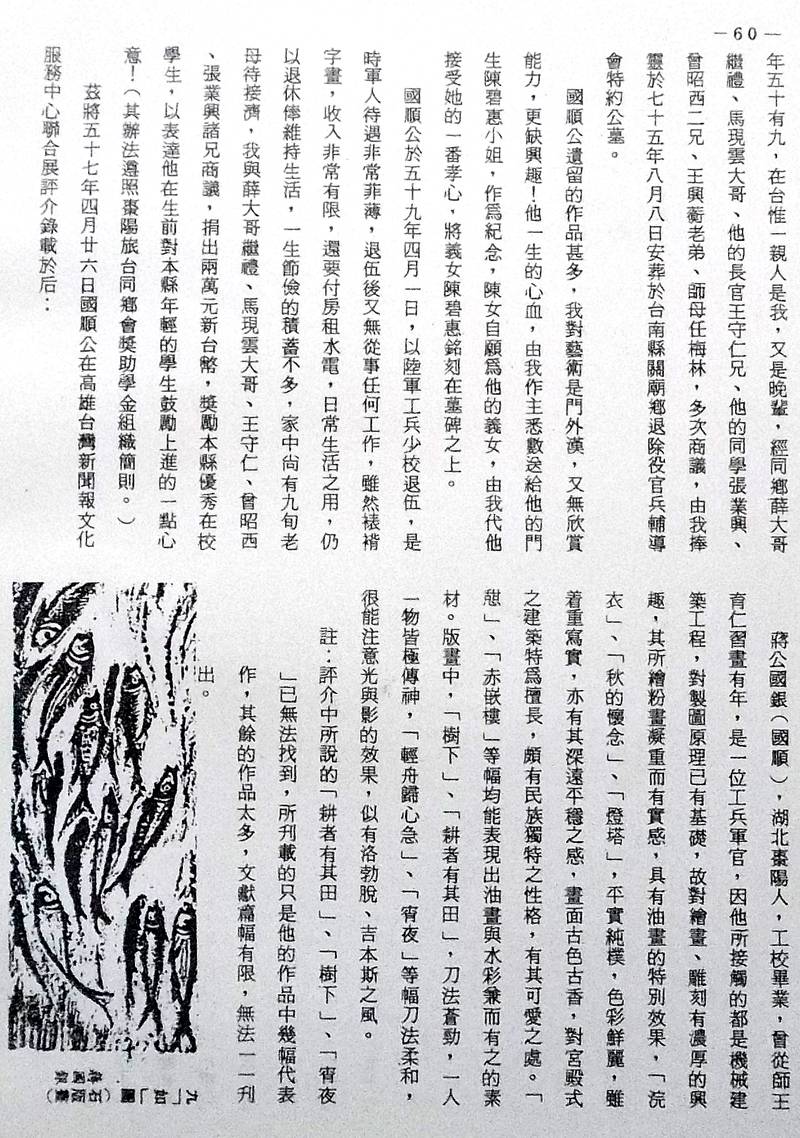 —60—
年五十有九，在台惟一親人是我，又是晚輩，經同鄉薛大哥
繼禮、馬現雲大哥、他的長官王守仁兄、他的同學張業興、
曾昭西二兄、王興蘅老弟、師母任梅林，多次商議，由我捧
靈於七十五年八月八日安葬於台南縣關廟鄉退除役官兵輔導
會特約公墓。
國順公遺留的作品甚多，我對藝術是門外漢，又無欣賞
能力，更缺興趣！他一生的心血，由我作主悉數送給他的門
生陳碧惠小姐，作爲紀念，陳女自願爲他的義女，由我代他
接受她的一番孝心，將義女陳碧惠銘刻在墓碑之上。
國順公於五十九年四月一日，以陸軍工兵少校退伍，是
時軍人待遇非常菲薄，退伍後又無從事任何工作，雖然裱褙
字畫，收入非常有限，還要付房租水電，日常生活之用，仍
以退休俸維持生活，一生節儉的積蓄不多，家中尚有九旬老
母待接濟，我與薛大哥繼禮、馬現雲大哥、王守仁、曾昭西
、張業興諸兄商議，捐出兩萬元新台幣，獎勵本縣優秀在校
學生，以表達他在生前對本縣年輕的學生鼓勵上進的一點心
意！（其辦法遵照棗陽旅台同鄉會獎助學金組織簡則。）
茲將五十七年四月廿六日國順公在高雄台灣新聞報文化
服務中心聯合展評介錄載於后：
蔣公國銀（國順），湖北棗陽人，工校畢業，曾從師王
育仁習畫有年，是一位工兵軍官，因他所接觸的都是機械建
築工程，對製圖原理已有基礎，故對繪畫、雕刻有濃厚的興
趣，其所繪粉畫凝重而有實感，具有油畫的特別效果，「浣
衣」、「秋的懷念」、「燈塔」，平實純樸，色彩鮮麗，雖
着重寫實，亦有其深遠平穩之感，畫面古色古香，對宮殿式
之建築特爲擅長，頗有民族獨特之性格，有其可愛之處。「
憇」、「赤嵌樓」等幅均能表現出油畫與水彩兼而有之的素
材。版畫中，「樹下」、「耕者有其田」，刀法蒼勁，一人
一物皆極傳神，「輕舟歸心急」、「宵夜」等幅刀法柔和，
很能注意光與影的效果，似有洛勃脫、吉本斯之風。
註：評介中所說的「耕者有其田」、「樹下」、「宵夜
」已無法找到，所刊載的只是他的作品中幾幅代表
作，其餘的作品太多，文獻篇幅有限，無法一一刊
出。
九「如」圖（石版畫）
蔣國銀